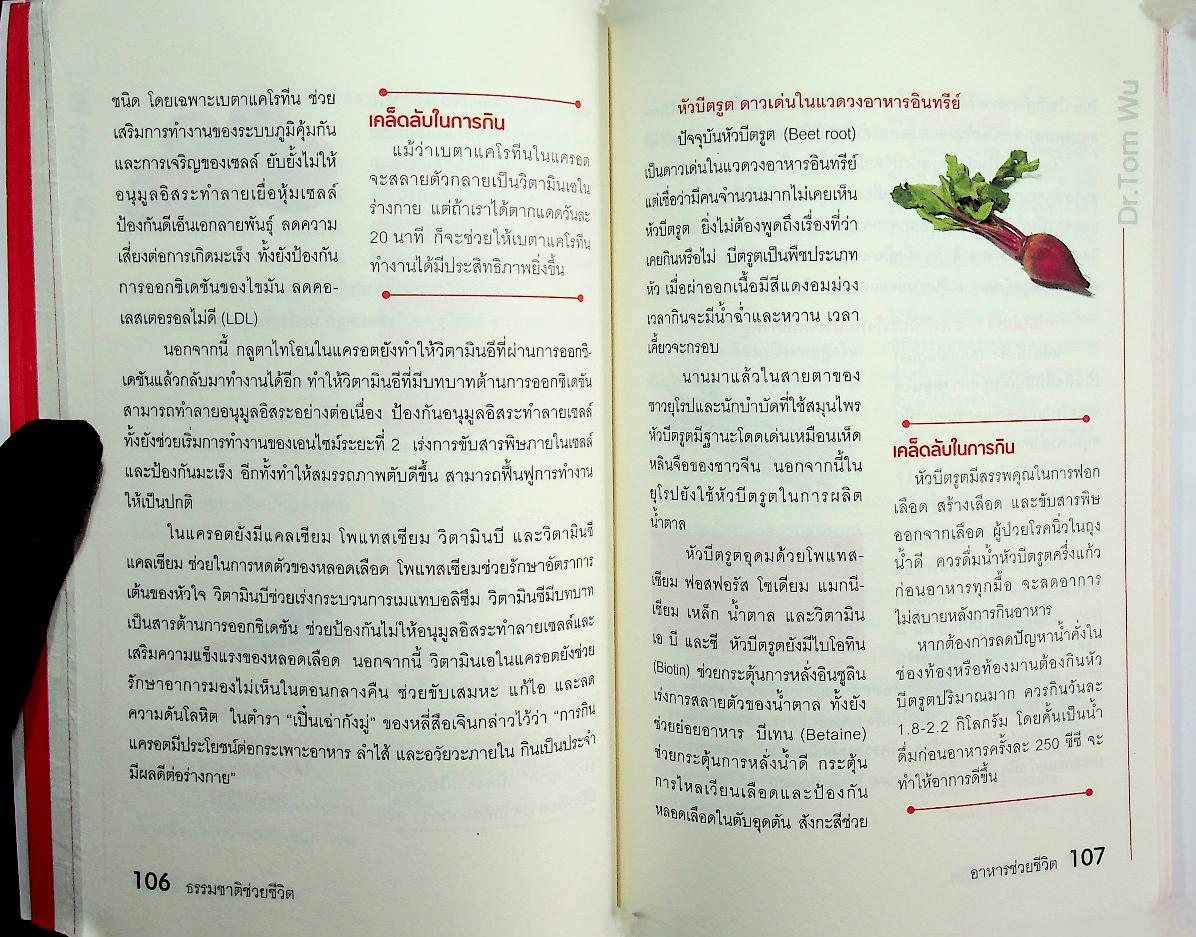 ชนิด โดยเฉพาะเบตาแคโรทีน ช่วย
เสริมการทำงานของระบบภูมิคุ้มกัน
และการเจริญของเซลล์ ยับยั้งไม่ให้
อนุมูลอิสระทำลายเยื่อหุ้มเซลล์
ป้องกันดีเอ็นเอกลายพันธุ์ ลดความ
เสี่ยงต่อการเกิดมะเร็ง ทั้งยังป้องกัน
การออกซิเดชันของไขมัน ลดคอ-
เลสเตอรอลไม่ดี (LDL)
เคล็ดลับในการกิน
แม้ว่าเบตาแคโรทีนในแครอต
จะสลายตัวกลายเป็นวิตามินเอใน
ร่างกาย แต่ถ้าเราได้ตากแดดวันละ
20 นาที ก็จะช่วยให้เบตาแคโรทีน
ทำงานได้มีประสิทธิภาพยิ่งขึ้น
นอกจากนี้ กลูตาไทโอนในแครอตยังทำให้วิตามินอีที่ผ่านการออกซิ-
เดชันแล้วกลับมาทำงานได้อีก ทำให้วิตามินอีที่มีบทบาทต้านการออกซิเดชัน
สามารถทำลายอนุมูลอิสระอย่างต่อเนื่อง ป้องกันอนุมูลอิสระทำลายเซลล์
ทั้งยังช่วยเริ่มการทำงานของเอนไซม์ระยะที่ 2 เร่งการขับสารพิษภายในเซลล์
และป้องกันมะเร็ง อีกทั้งทำให้สมรรถภาพตับดีขึ้น สามารถฟื้นฟูการทำงาน
ให้เป็นปกติ
ในแครอตยังมีแคลเซียม โพแทสเซียม วิตามินบี และวิตามินซี
แคลเซียม ช่วยในการหดตัวของหลอดเลือด โพแทสเซียมช่วยรักษาอัตราการ
เต้นของหัวใจ วิตามินบีช่วยเร่งกระบวนการเมแทบอลิซึม วิตามินซีมีบทบาท
เป็นสารต้านการออกซิเดชัน ช่วยป้องกันไม่ให้อนุมูลอิสระทำลายเซลล์และ
เสริมความแข็งแรงของหลอดเลือด นอกจากนี้ วิตามินเอในแครอตยังช่วย
รักษาอาการมองไม่เห็นในตอนกลางคืน ช่วยขับเสมหะ แก้ไอ และลด
ความดันโลหิต ในตำรา “เปิ่นเฉ่ากังมู่” ของหลี่สือเจินกล่าวไว้ว่า “การกิน
แครอตมีประโยชน์ต่อกระเพาะอาหาร ลำไส้ และอวัยวะภายใน กินเป็นประจำ
มีผลดีต่อร่างกาย”
106 ธรรมชาติช่วยชีวิต
หัวบีตรูต ดาวเด่นในแวดวงอาหารอินทรีย์
ปัจจุบันหัวบีตรูต (Beet root)
เป็นดาวเด่นในแวดวงอาหารอินทรีย์
แต่เชื่อว่ามีคนจำนวนมากไม่เคยเห็น
หัวบีตรูต ยิ่งไม่ต้องพูดถึงเรื่องที่ว่า
เคยกินหรือไม่ บีตรูตเป็นพืชประเภท
หัว เมื่อผ่าออกเนื้อมีสีแดงอมม่วง
เวลากินจะมีน้ำฉ่ำและหวาน เวลา
เคี้ยวจะกรอบ
นานมาแล้วในสายตาของ
ชาวยุโรปและนักบำบัดที่ใช้สมุนไพร
หัวบีตรูตมีฐานะโดดเด่นเหมือนเห็ด
หลินจือของชาวจีน นอกจากนี้ใน
ยุโรปยังใช้หัวบีตรูตในการผลิต
น้ำตาล
หัวบีตรูตอุดมด้วยโพแทส-
เซียม ฟอสฟอรัส โซเดียม แมกนี-
เซียม เหล็ก น้ำตาล และวิตามิน
เอ บี และซี หัวบีตรูตยังมีไบโอทิน
(Biotin) ช่วยกระตุ้นการหลั่งอินซูลิน
เร่งการสลายตัวของน้ำตาล ทั้งยัง
ช่วยย่อยอาหาร บีเทน (Betaine)
ช่วยกระตุ้นการหลั่งน้ำดี กระตุ้น
การไหลเวียนเลือดและป้องกัน
หลอดเลือดในตับอุดตัน สังกะสีช่วย
เคล็ดลับในการกิน
หัวบีตรูตมีสรรพคุณในการฟอก
เลือด สร้างเลือด และขับสารพิษ
ออกจากเลือด ผู้ป่วยโรคนิ่วในถุง
น้ำดี ควรดื่มน้ำหัวบีตรูตครึ่งแก้ว
ก่อนอาหารทุกมื้อ จะลดอาการ
ไม่สบายหลังการกินอาหาร
หากต้องการลดปัญหาน้ำคั่งใน
ช่องท้องหรือท้องมานต้องกินหัว
บีตรูตปริมาณมาก ควรกินวันละ
1.8-2.2 กิโลกรัม โดยคั้นเป็นน้ำ
ดื่มก่อนอาหารครั้งละ 250 ซีซี จะ
ทำให้อาการดีขึ้น
Dr.Tom Wu
อาหารช่วยชีวิต 107